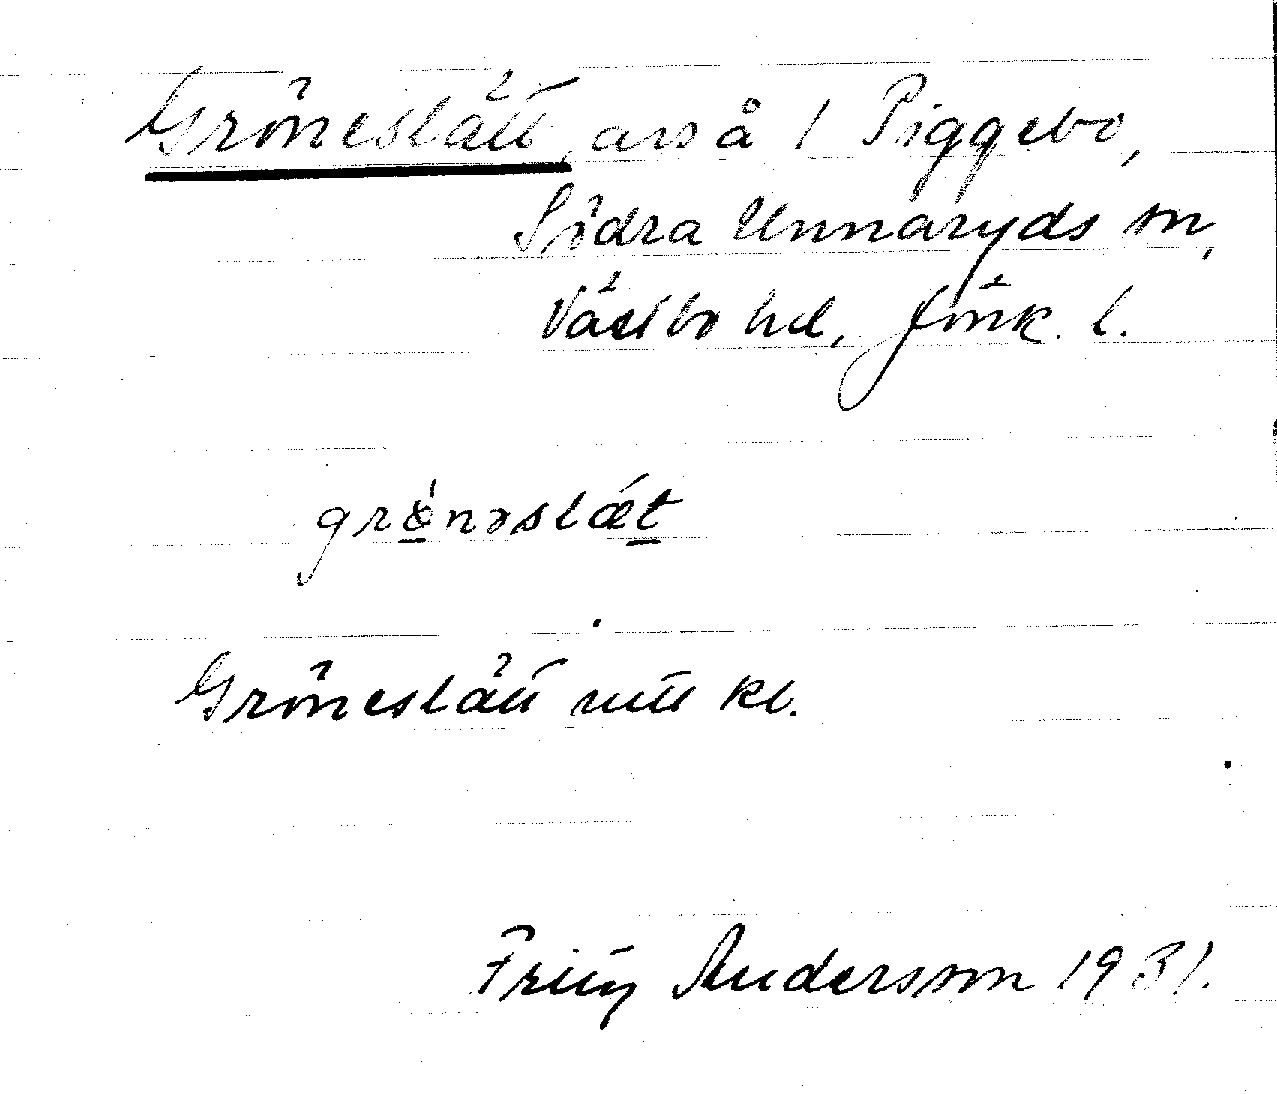 Gröneslätt, avs å / Piggebo,
Södra Unnaryds sn,
Västbo hd, Jönk. l.
grö́nəslǽt
Gröneslätt nitt kl.
Fritz Andersson 1931.